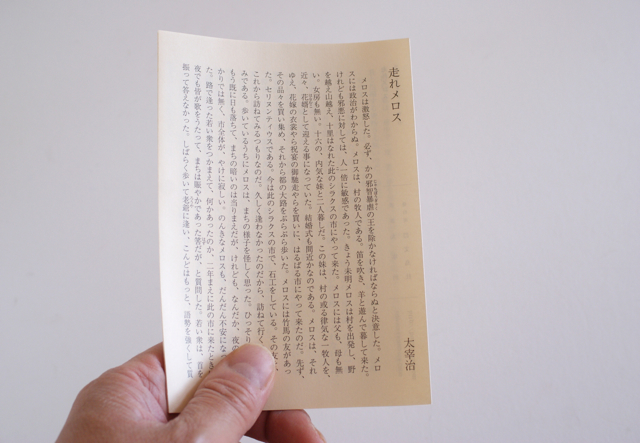 走れメロス
太宰治
メロスは激怒した。必ず、かの邪智暴虐の王を除かなければならぬと決意した。メロ
スには政治がわからぬ。メロスは、村の牧人である。笛を吹き、羊と遊んで暮して来た。
けれども邪悪に対しては、人一倍に敏感であった。きょう未明メロスは村を出発し、野
を越え山越え、十里はなれた此のシラクスの市にやって来た。メロスには父も、母も無
い。女房も無い。十六の、内気な妹と二人暮しだ。この妹は、村の或る律気な一牧人を、
近々、花婿として迎える事になっていた。結婚式も間近かなのである。メロスは、それ
ゆえ、花嫁の衣裳やら祝宴の御馳走やらを買いに、はるばる市にやって来たのだ。先ず、
その品々を買い集め、それから都の大路をぶらぶら歩いた。メロスには竹馬の友があっ
た。セリヌンティウスである。今は此のシラクスの市で、石工をしている。その友を、
これから訪ねてみるつもりなのだ。久しく逢わなかったのだから、訪ねて行く
みである。歩いているうちにメロスは、まちの様子を怪しく思った。ひっそり
もう既に日も落ちて、まちの暗いのは当りまえだが、けれども、なんだか、夜の
かりでは無く、市全体が、やけに寂しい。のんきなメロスも、だんだん不安にな
た。路で逢った若い衆をつかまえて、何かあったのか、二年まえに此の市に来たとき
夜でも皆が歌をうたって、まちは賑やかであった筈だが、と質問した。若い衆は、首を
振って答えなかった。しばらく歩いて老爺に逢い、こんどはもっと、語勢を強くして質